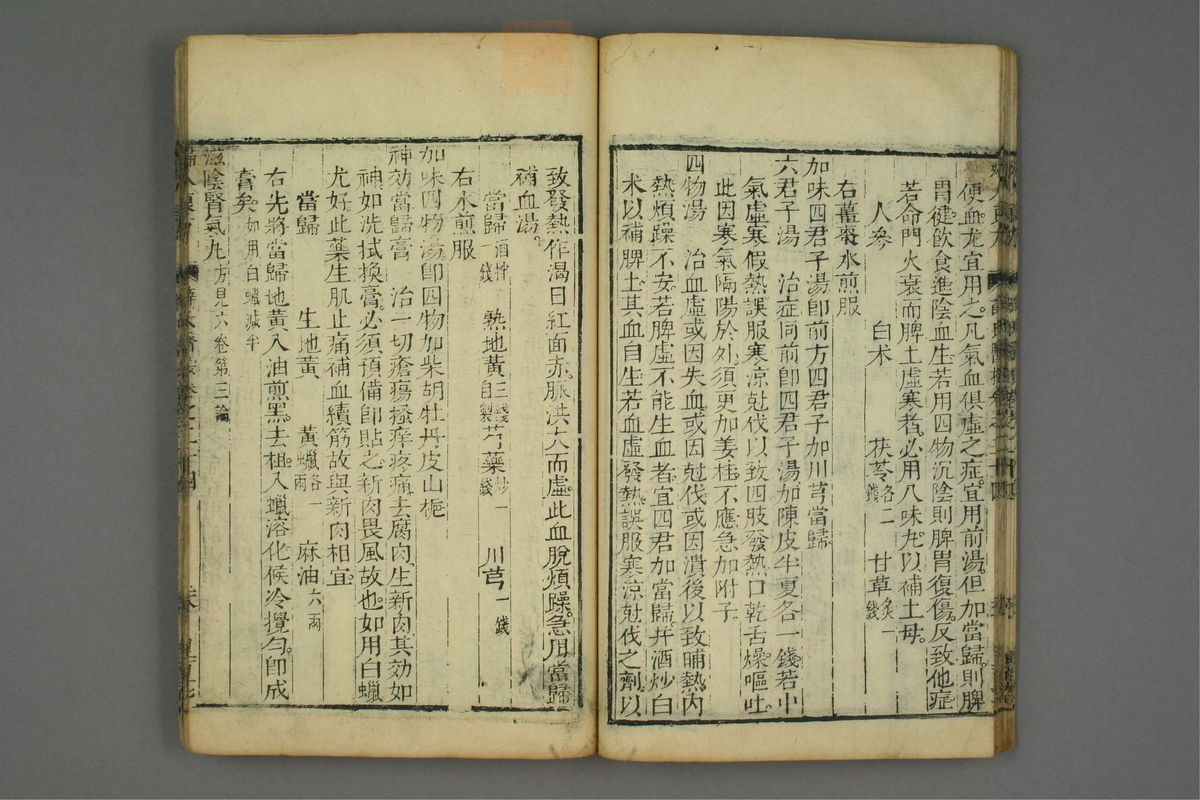 便血尤宜用之凡氣血俱虛之症宜用前湯但加當歸則脾
胃健飲食進陰血生若用四物沉陰則脾胃復傷反致他症
若命門火衰而脾土虛寒者必用八味丸以補土母
人參 白朮 茯苓各二錢 甘草炙一錢
右薑棗水煎服
加味四君子湯卽前方四君子加川芎當歸
六君子湯 治症同前卽四君子湯加陳皮半夏各一錢若中
氣虛寒假熱誤服寒涼尅伐以致四肢發熱口乾舌燥嘔吐
此因寒氣隔陽於外須更加姜桂不應急加附子
四物湯 治血虛或因失血或因尅伐或因潰後以致晡熱內
熱煩躁不安若脾虛不能生血者宜四君加當歸并酒炒白
朮以補脾土其血自生若血虛發熱誤服寒涼尅伐之劑以
致發熱作渴目紅面赤脈洪大而虛此血脫煩躁急用當歸
補血湯
當歸酒拌一錢 熟地黃三錢自製 芍藥炒一錢 川芎一錢
右水煎服
加味四物湯卽四物加柴胡牡丹皮山梔
神效當歸膏 治一切瘡瘍搔痒疼痛去腐肉生新肉其効如
神如洗拭換膏必須預備卽貼之新肉畏風故也如用白蠟
尤好此藥生肌止痛補血續筋故與新肉相宜
當歸 生地黃 黃蠟各一兩 麻油六兩
右先將當歸地黃入油煎黑去柤入蠟溶化候冷攪勻卽成
膏矣如用白蠟減半
滋陰腎氣丸方見六卷第三論